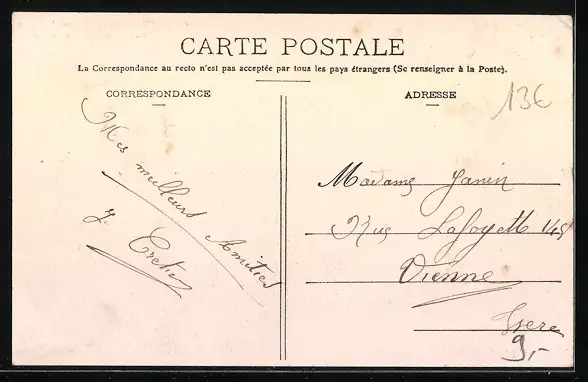 CARTE POSTALE
La Correspondance au recto n'est pas acceptée par tous les pays étrangers (Se renseigner à la Poste).
CORRESPONDANCE
ADRESSE
13€
Mes meilleurs Amitiés
Madame Janin
Rue Lafayette
Vienne
Isere
9,-